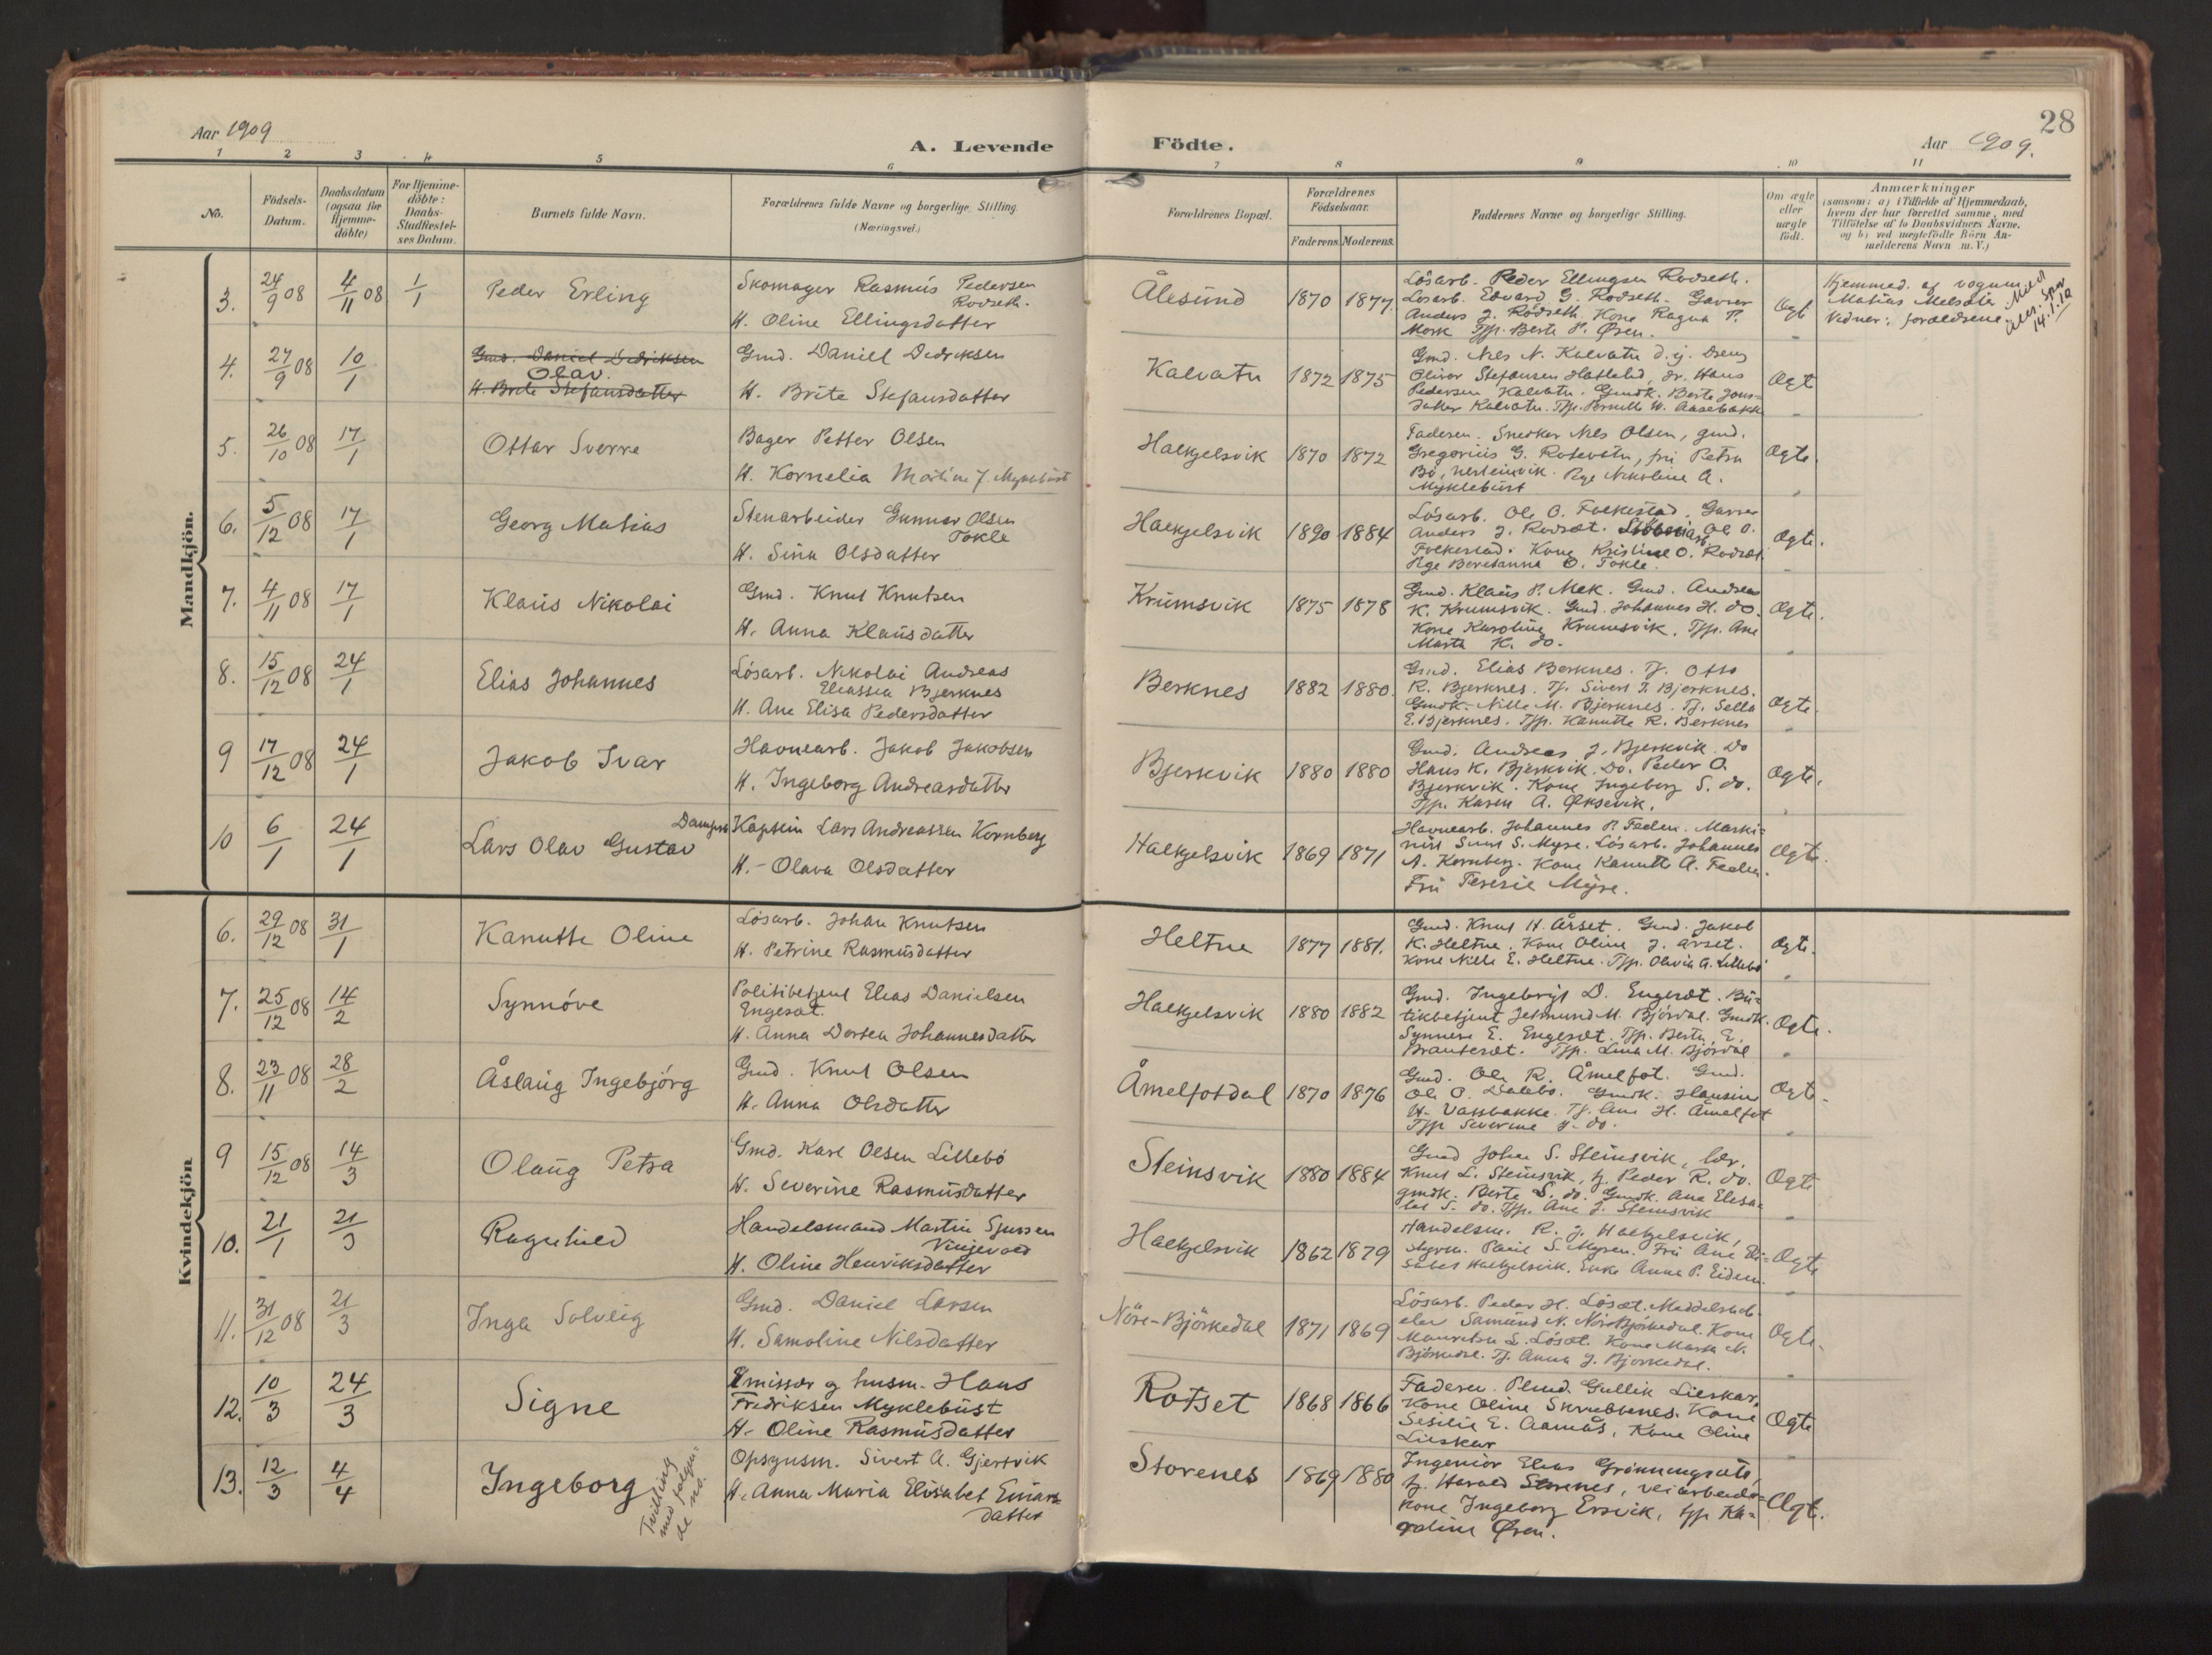 28
Aar 1909
A. Levende Födte.
Aar 1909.
1 2 3 4 5 6 7 8 9 10 11
No.
Födsels-Datum.
Daabsdatum (ogsaa for Hjemme-döbte)
For Hjemme-döbte: Daabs-Stadfæstel-ses Datum.
Barnets fulde Navn.
Forældrenes fulde Navne og borgerlige Stilling. (Næringsvei.)
Forældrenes Bopæl.
Forældrenes Födselsaar.
Faderens. Moderens.
Faddernes Navne og borgerlige Stilling.
Om ægte eller uægte födt.
Anmærkninger
(saasom: a) i Tilfælde af Hjemmedaab,
hvem der har forrettet samme, med
Tilföielse af to Daabsvidners Navne.
og b) ved uægtefödte Börn An-
melderens Navn m. V.)
Mandkjön.
3. 24/9 08 4/11 08 1/1 Peder Erling
Skomager Rasmus Pedersen
Rodseth.
H. Oline Ellingsdatter
Ålesund 1870 1877.
Lösarb. Peder Ellingsen Rodseth.
Losarb. Edvard G. Rodseth. Garver
Anders J. Rödseth. Kone Ragna P.
Mork Tjp. Berte P. Øren.
Ægt
Hjemmed. af vognm.
Matias Melsæter.
Vidner: forældrene.
14.1.19
4. 27/9 08 10/1
Gmd. Daniel Didriksen
Olav.
H. Brite Stefansdatter
Gmd. Daniel Didriksen
H. Brite Stefansdatter
Kalvatn 1872 1875
Gmd. Nils N. Kalvatn d.y. Dreng
Olivar Stefansen Hatlelid, dr. Hans
Pedersen Kalvatn. Gmdk. Berte Jons-
datter Kalvatn. Tjp. Pernille W. Aasebakk
Ægt
5. 26/10 08 17/1 Ottar Sverre
Bager Petter Olsen
H. Kornelia Martine J. Myklebust
Haekjelsvik 1870 1872
Faderen. Snedker Nils Olsen, gmd.
Gregorius G. Rotevatn, fru Petra
Bö, . Pige Nikoline A.
Myklebust
Ægte.
6. 5/12 08 17/1 Georg Matias
Stenarbeider Gunnar Olsen
Fokle
H. Sina Olsdatter
Haekjelsvik 1890 1884
Lösarb. Ole O. Folkestad. Garver
Anders J. Rodsæt. Ole O.
Folkestad. Kone Kristine O. Rodsæt.
Pige Beretanna O. Fokle.
Ægte.
7. 4/11 08 17/1 Klaus Nikolai
Gmd. Knut Knutsen
H. Anna Klausdatter
Krumsvik 1875 1878
Gmd. Klaus P. Mek. Gmd. Andreas
K. Krumsvik. Gmd. Johannes H. do.
Kone Karoline Krumsvik. Tjp. Ane
Marta K. do.
Ægte.
8. 15/12 08 24/1 Elias Johannes
Lösarb. Nikolai Andreas
Eliassen Bjerknes
H. Ane Elisa Pedersdatter
Berknes 1882 1880.
Gmd. Elias Berknes. Tj. Otto
R. Bjerknes. Tj. Sivert T. Bjerknes.
Gmdk. Nille M. Bjerknes. Tj. Sella
E. Bjerknes. Tjp. Kanutte R. Berknes
Ægte.
9 17/12 08 24/1 Jakob Ivar
Havnearb. Jakob Jakobsen
H. Ingeborg Andreasdatter
Bjerkvik 1880 1880
Gmd. Andreas J. Bjerkvik. Do
Hans K. Bjerkvik. Do. Peder O.
Bjerkvik. Kone Ingeborg S. do.
Tjp. Karen A. Øksevik.
Ægte.
10 6/1 24/1 Lars Olav Gustav
Dampsk Kaptein Lars Andreassen Kornberg
H. Olava Olsdatter
Haekjelsvik 1869 1871
Havnearb. Johannes P. Feden. Maski-
nist S. Myre. Lösarb. Johannes
A. Kornberg. Kone Kanutte A. Feden.
Fru Teresie Myre.
Ægte.
Kvindekjön
6. 29/12 08 31/1 Kanutte Oline
Lösarb. Johan Knutsen
H. Petrine Rasmusdatter
Heltne 1877 1881.
Gmd. Knut H. Årset. Gmd. Jakob
K. Heltne. Kone Oline J. Årset.
Kone Nille E. Heltne. Tjp. Olivia A. Lillebö
Ægte.
7. 25/12 08 14/2 Synnöve
Politibetjent Elias Danielsen
Engesæt.
H. Anna Dortea Johannesdatter
Haekjelsvik 1880 1882
Gmd. Ingebrigt D. Engesæt. Bu-
tikbetjent Jetmund M. Björdal. Gmdk.
Synneve E. Engesæt. Tjp. Berta E.
Brautesæt. Tjp. Lina M. Björdal
Ægte.
8. 23/11 08 28/2 Åslaug Ingebjörg
Gmd. Knut Olsen
H. Anna Olsdatter
Åmelfotdal 1870 1876
Gmd. Ole R. Åmelfot. Gmd.
Ole P. Dalebö. Gmdk. Hansine
H. Vassbakke. Tj. Ane H. Åmelfot
Tjp Severine J. do.
Ægte
9 15/12 08 14/3 Olaug Petra
Gmd. Karl Olsen Lillebö
H. Severine Rasmusdatter
Steinsvik 1880 1884
Gmd Johan S. Steinsvik, lær.
Knut L. Steinsvik, tj. Peder R. do.
gmdk. Berte S. do. Gmdk. Ane Elisa-
bet S. do. Tjp. Ane J. Steinsvik
Ægte
10. 21/1 21/3 Ragnhild
Handelsmand Martin Sjursen
Vinjevold
H. Oline Henriksdatter
Haekjelsvik 1862 1879
Handelsm. R. J. Haekjelsvik,
Styrm. Paul S. Myren. Fru Ane Eli-
sabet Haekjelsvik. Enke Anna P. Eidem.
Ægte
11. 31/12 08 21/3 Inga Solveig
Gmd. Daniel Larsen
H. Samoline Nilsdatter
Nöre-Björkedal 1871 1869
Lösarb. Peder H. Lösæt. Middelsk-
elev Samund N. NörBjörkedal. Kone
L. Lösæt. Kone Marta N.
Björkedal. Tj. Anna J. Bjorkedal.
Ægte.
12. 10/3 24/3 Signe
Emissær og husm. Hans
Fredriksen Myklebust
H. Oline Rasmusdatter
Rotset 1868 1866
Faderen. Plmd. Gullik Lieskar,
Kone Oline Skrubbenes. Kone
Sesilie E. Aamås, Kone Oline
Lieskar
Ægte
13. 12/3 4/4 Ingeborg
Tvilling
med følgen-
de no.
Opsynsm. Sivert A. Gjertvik
H. Anna Maria Elisabet Einars-
datter
Storenes 1869 1880
Ingeniör Elias Grönningsæter,
tj. Harald Storenes, veiarbeider
Kone Ingeborg Ersvik, tjp. Ka-
roline Øren.
Ægt.